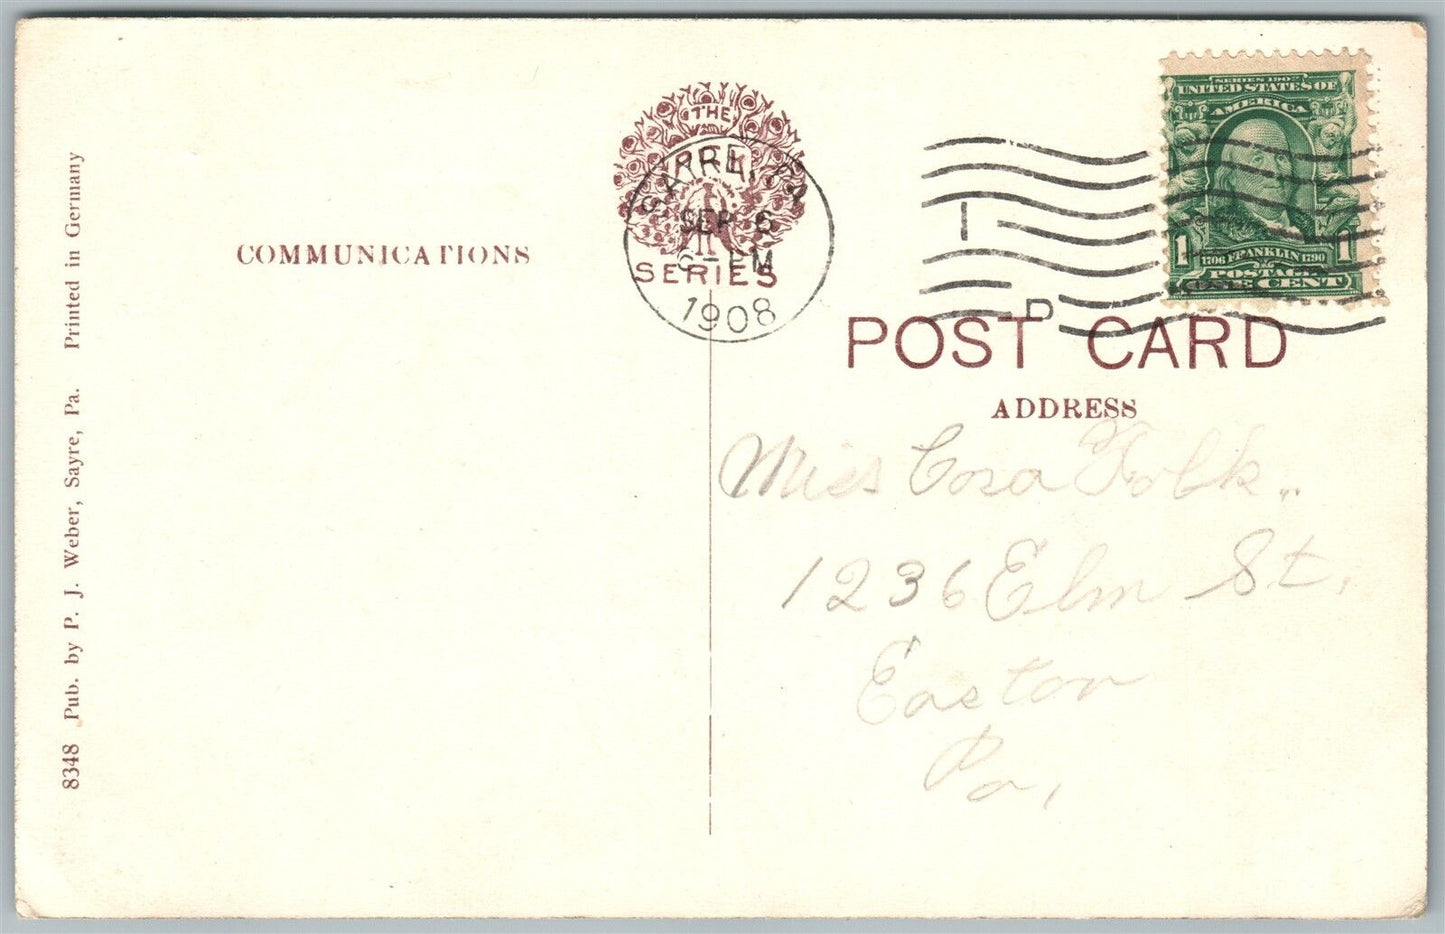 8348 Pub. by P. J. Weber, Sayre, Pa. Printed in Germany
COMMUNICATIONS
THE
SERIES
SAYRE, PA
SEP 6
6 - PM
1908
1
D
SERIES 1902
UNITED STATES OF
AMERICA
1 1706 FRANKLIN 1790 1
POSTAGE
ONE CENT
POST CARD
ADDRESS
Miss Cora Folk.
1236 Elm St.
Easton
Pa.